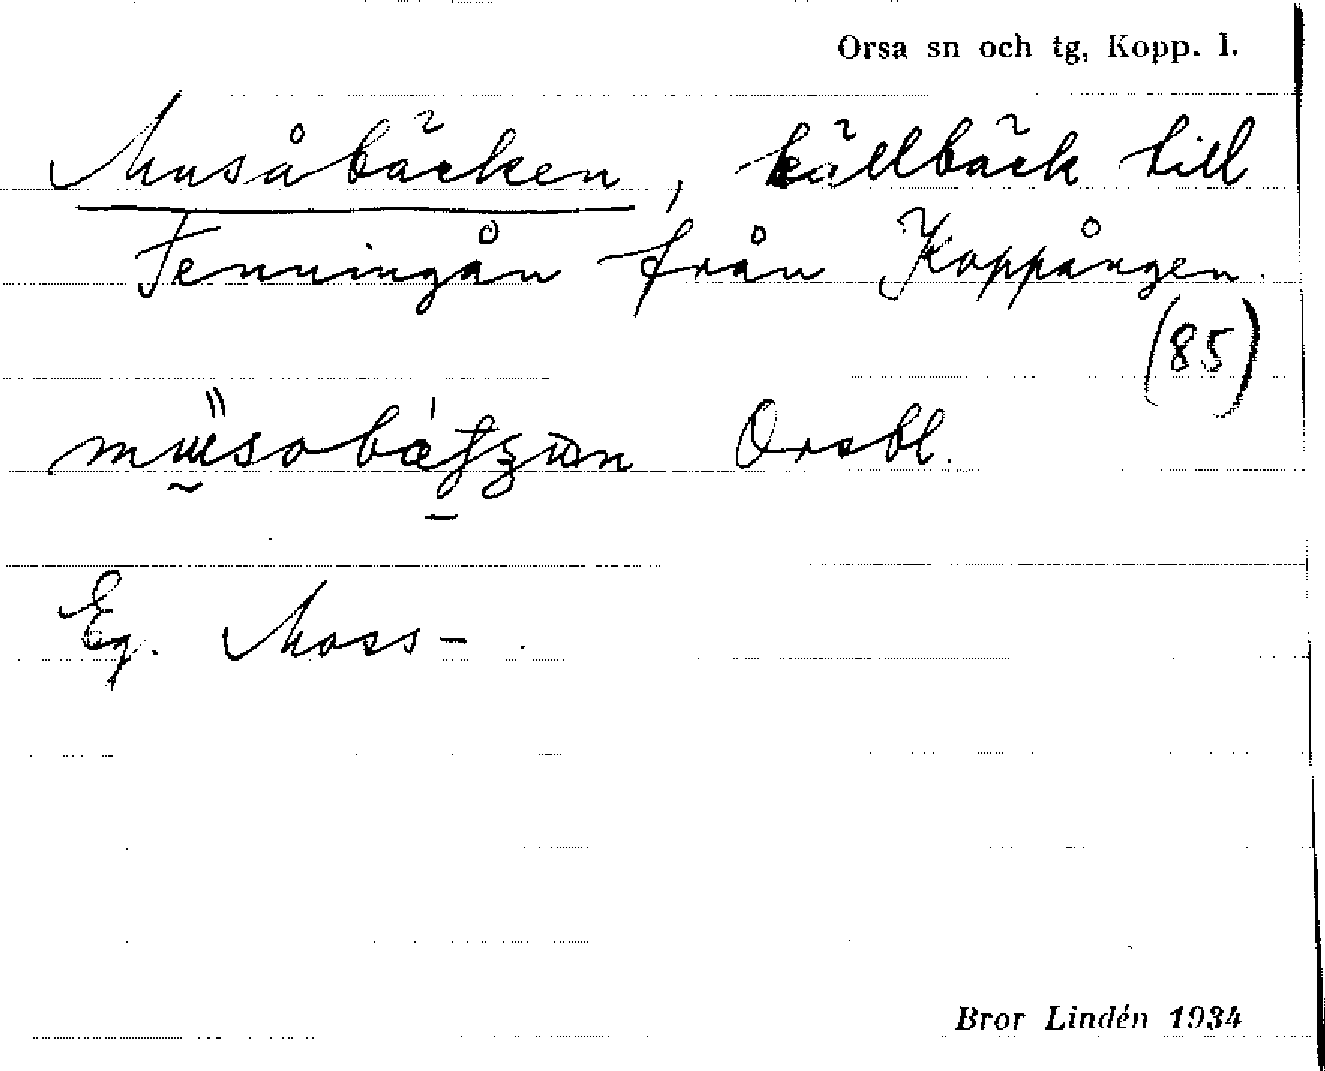 Orsa sn och tg, Kopp. l.
Musåbäcken, källbäck till
Fenningån från Koppången.
(85)
Orsbl.
Eg. Moss-.
Bror Lindén 1934